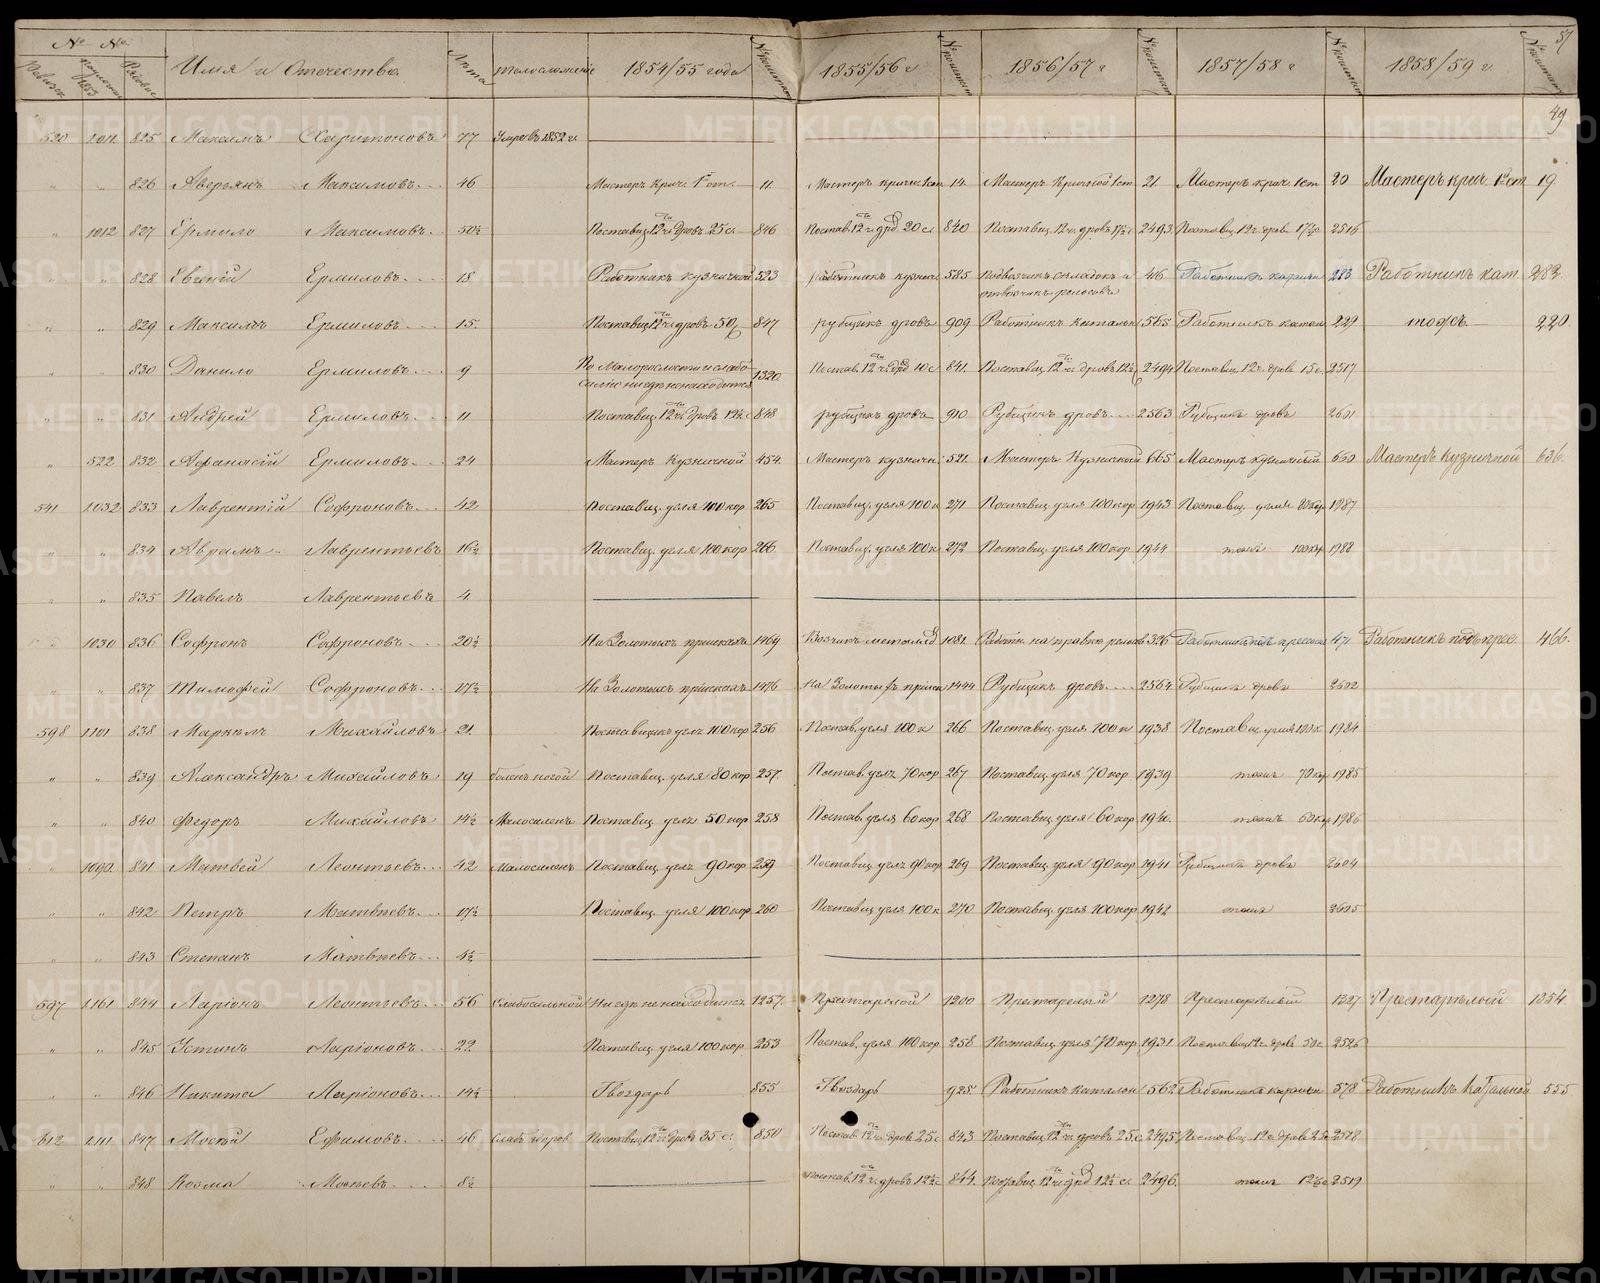 57
№ № Имя и Отчество. Лета Телосложение 1854/55 года № 1855/56 г № 1856/57 г № 1857/58 г № 1858/59 г. №
49
520 1011 825 Максимъ Харитоновъ 77 Умръ въ 1852 г.
" " 826 Аверьянъ Максимовъ 46 Мастеръ крич. 1й ст. 11. Мастеръ кричн 1 ст 14. Мастеръ Кричной 1 ст 21. Мастеръ крич. 1 ст 20 Мастеръ крич 1й ст 19.
" 1012 827 Ермило Максимовъ 50½ Поставщ. 12 ч. дровъ 25 с. 846 Постав. 12 ч. 20 с 840 Поставщ. 12 ч. дровъ 17½ с 2493 Поставщ. 12 ч. дровъ 17½ 2516
" " 828 Ермиловъ 18 Работникъ кузничной 523 работникъ кузничн 585 Подвозчикъ складокъ и 416 Работникъ 283 Работникъ кат. 282.
" " 829 Максимъ Ермиловъ 15. Поставщ. 12 ч. дровъ 50 847 рубщикъ дровъ 909 Работникъ каталн 565 Работникъ катал 229 тожъ 220.
" " 830 Данило Ермиловъ 9 По Малорослости и слабо- 1320. Постав. 12 ч. 10 с 841. Поставщ. 12 ч. дровъ 12½ 2494 Поставщ. 12 ч. дровъ 15 с. 2517
силію нигдѣ не находится
" " 831 Андрей Ермиловъ 11 Поставщ. 12 ч. дровъ 12½ с 848 рубщикъ дровъ 910 Рубщикъ дровъ 2563 Рубщикъ дровъ 2601
" 522 832 Афанасій Ермиловъ 24 Мастеръ Кузничной 454. Мастеръ кузничн. 521. Мастеръ Кузничный 665 Мастеръ кузничный 660 Мастеръ Кузничной 636.
541 1032 833 Лаврентій Софроновъ 42 Поставщ. угля 100 кор 265 Поставщ. угля 100 к 271 Поставщ. угля 100 кор 1943 Поставщ. угля 80 кор 1987
" " 834 Аврамъ Лаврентьевъ 16½ Поставщ. угля 100 кор 266 Поставщ. угля 100 к 272 Поставщ. угля 100 кор 1944 тожъ 100 кор 1988
" " 835 Павелъ Лаврентьевъ 4.
1030 836 Софронъ Софроновъ 20½ На Золотыхъ пріискахъ 1469 Возчикъ 1081. Работн. на правкѣ рельсовъ 326 Работникъ 471 Работникъ подъ прес. 466.
" " 837 Тимофей Софроновъ 17½ На Золотыхъ пріискахъ 1476 На Золотыхъ пріиск 1444 Рубщикъ дровъ 2564 Рубщикъ дровъ 2602
598 1101 838 Маркелъ Михайловъ 21. Поставщикъ угля 100 кор 256 Постав. угля 100 к 266 Поставщ. угля 100 к 1938 Поставщ. угля 100 к 1984
" " 839 Александръ Михайловъ 19 боленъ ногой Поставщ. угля 80 кор 257. Постав. угля 70 кор 267 Поставщ. угля 70 кор 1939 тожъ 70 кор 1985
" " 840 Федоръ Михайловъ 14½ Малосиленъ Поставщ угля 50 кор 258 Постав. угля 60 кор 268 Поставщ угля 60 кор 1940. тожъ 60 кор 1986
" 1090. 841 Матвей Леонтьевъ 42 Малосиленъ Поставщ угля 90 кор 259 Поставщ угля 90 кор 269 Поставщ угля 90 кор 1941 Рубщикъ дровъ 2604
" " 842 Петръ Матвѣевъ 17½ Поставщ угля 100 кор 260 Поставщ угля 100 к 270 Поставщ угля 100 кор 1942 тожъ 2605
" " 843 Степанъ Матвѣевъ 4½
597 1161 844 Ларіонъ Леонтьевъ 56 Слабосильной Нигдѣ не находится 1257. Престарелой 1200 Престарелый 1278 Престарелый 1327 Престарѣлый 1254.
" " 845 Устинъ Ларіоновъ 22. Поставщ угля 100 кор 253 Постав. угля 100 кор 258 Поставщ угля 70 кор 1931 Поставщ 12 ч. дровъ 50 с 2526
" " 846 Никита Ларіоновъ 14½ Гвоздарь 855 Гвоздарь 925. Работникъ каталн 562 Работникъ 578 Работникъ Катальной 555
612 1111 847 Мосей Ефимовъ 46 Слабъ Поставщ. 12 ч. дровъ 35 с. 850 Постав. 12 ч. дровъ 25 с. 843 Поставщ. 12 ч. дровъ 25 с. 2495 Поставщ. 12 ч. дровъ 25 с 2518
" " 848 Козма Мосеевъ 8½ постав. 12 ч. дровъ 12½ с 844. Поставщ. 12 ч. 12½ с. 2496. тожъ 12½ с 2519
METRIKI.GASO-URAL.RU